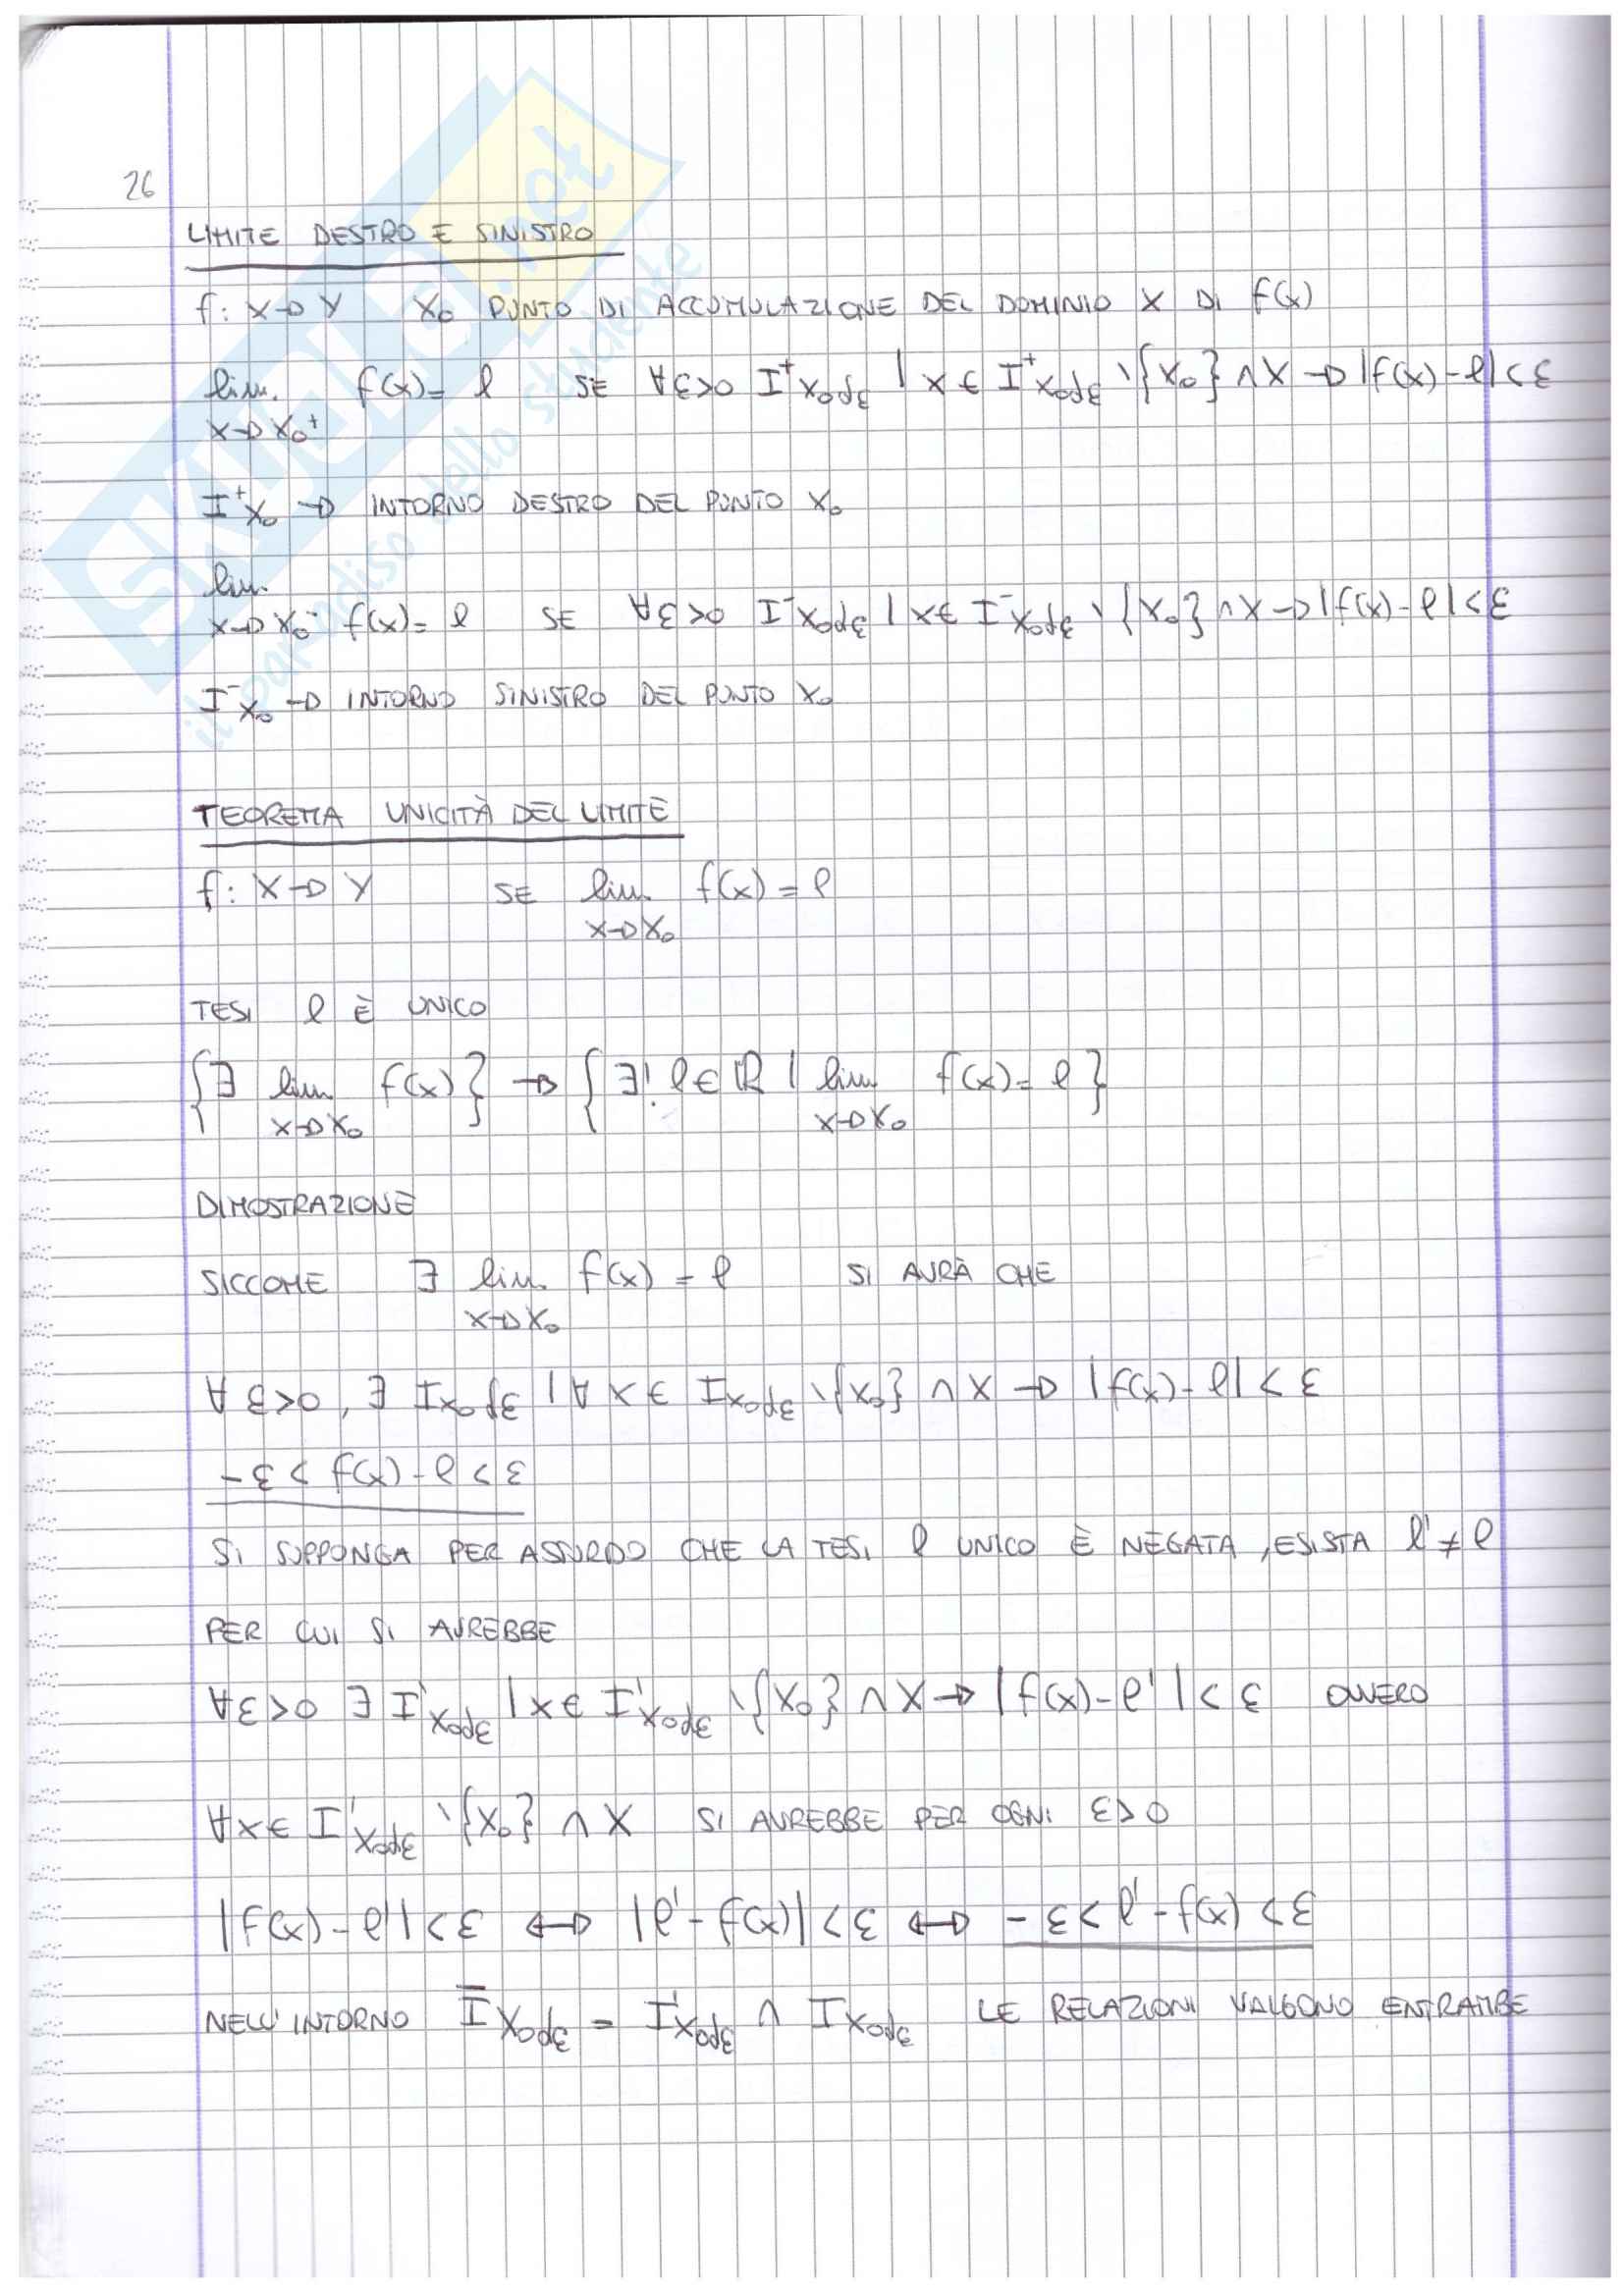 SKUOLA.net
il paradiso dello studente
26
LIMITE DESTRO E SINISTRO
f: X→Y X₀ PUNTO DI ACCUMULAZIONE DEL DOMINIO X DI f(x)
lim f(x)= l SE ∀ε>0 I⁺x₀δε | x ∈ I⁺x₀δε \{x₀} ∩ X → |f(x)-l|<ε
x→x₀⁺
I⁺x₀ → INTORNO DESTRO DEL PUNTO X₀
lim
x→x₀⁻ f(x)= l SE ∀ε>0 I⁻x₀δε | x∈ I⁻x₀δε \ {x₀} ∩ X → |f(x)-l|<ε
I⁻x₀ → INTORNO SINISTRO DEL PUNTO X₀
TEOREMA UNICITÀ DEL LIMITE
f: X→Y SE lim f(x) = l
x→x₀
TESI l È UNICO
{∃ lim f(x)} → {∃! l∈ℝ | lim f(x)= l}
x→x₀ x→x₀
DIMOSTRAZIONE
SICCOME ∃ lim f(x) = l SI AVRÀ CHE
x→x₀
∀ ε>0, ∃ Ix₀δε | ∀ x ∈ Ix₀δε \{x₀} ∩ X → |f(x)-l| < ε
-ε < f(x)-l < ε
SI SUPPONGA PER ASSURDO CHE LA TESI l UNICO È NEGATA, ESISTA l' ≠ l
PER CUI SI AVREBBE
∀ε>0 ∃ I'x₀δε | x∈ I'x₀δε \{x₀} ∩ X → |f(x)-l'| < ε OVVERO
∀x∈ I'x₀δε \{x₀} ∩ X SI AVREBBE PER OGNI ε>0
|f(x)-l'|<ε ↔ |l'-f(x)|<ε ↔ -ε<l'-f(x)<ε
NELL'INTORNO Ī x₀δε = I'x₀δε ∩ Ix₀δε LE RELAZIONI VALGONO ENTRAMBE